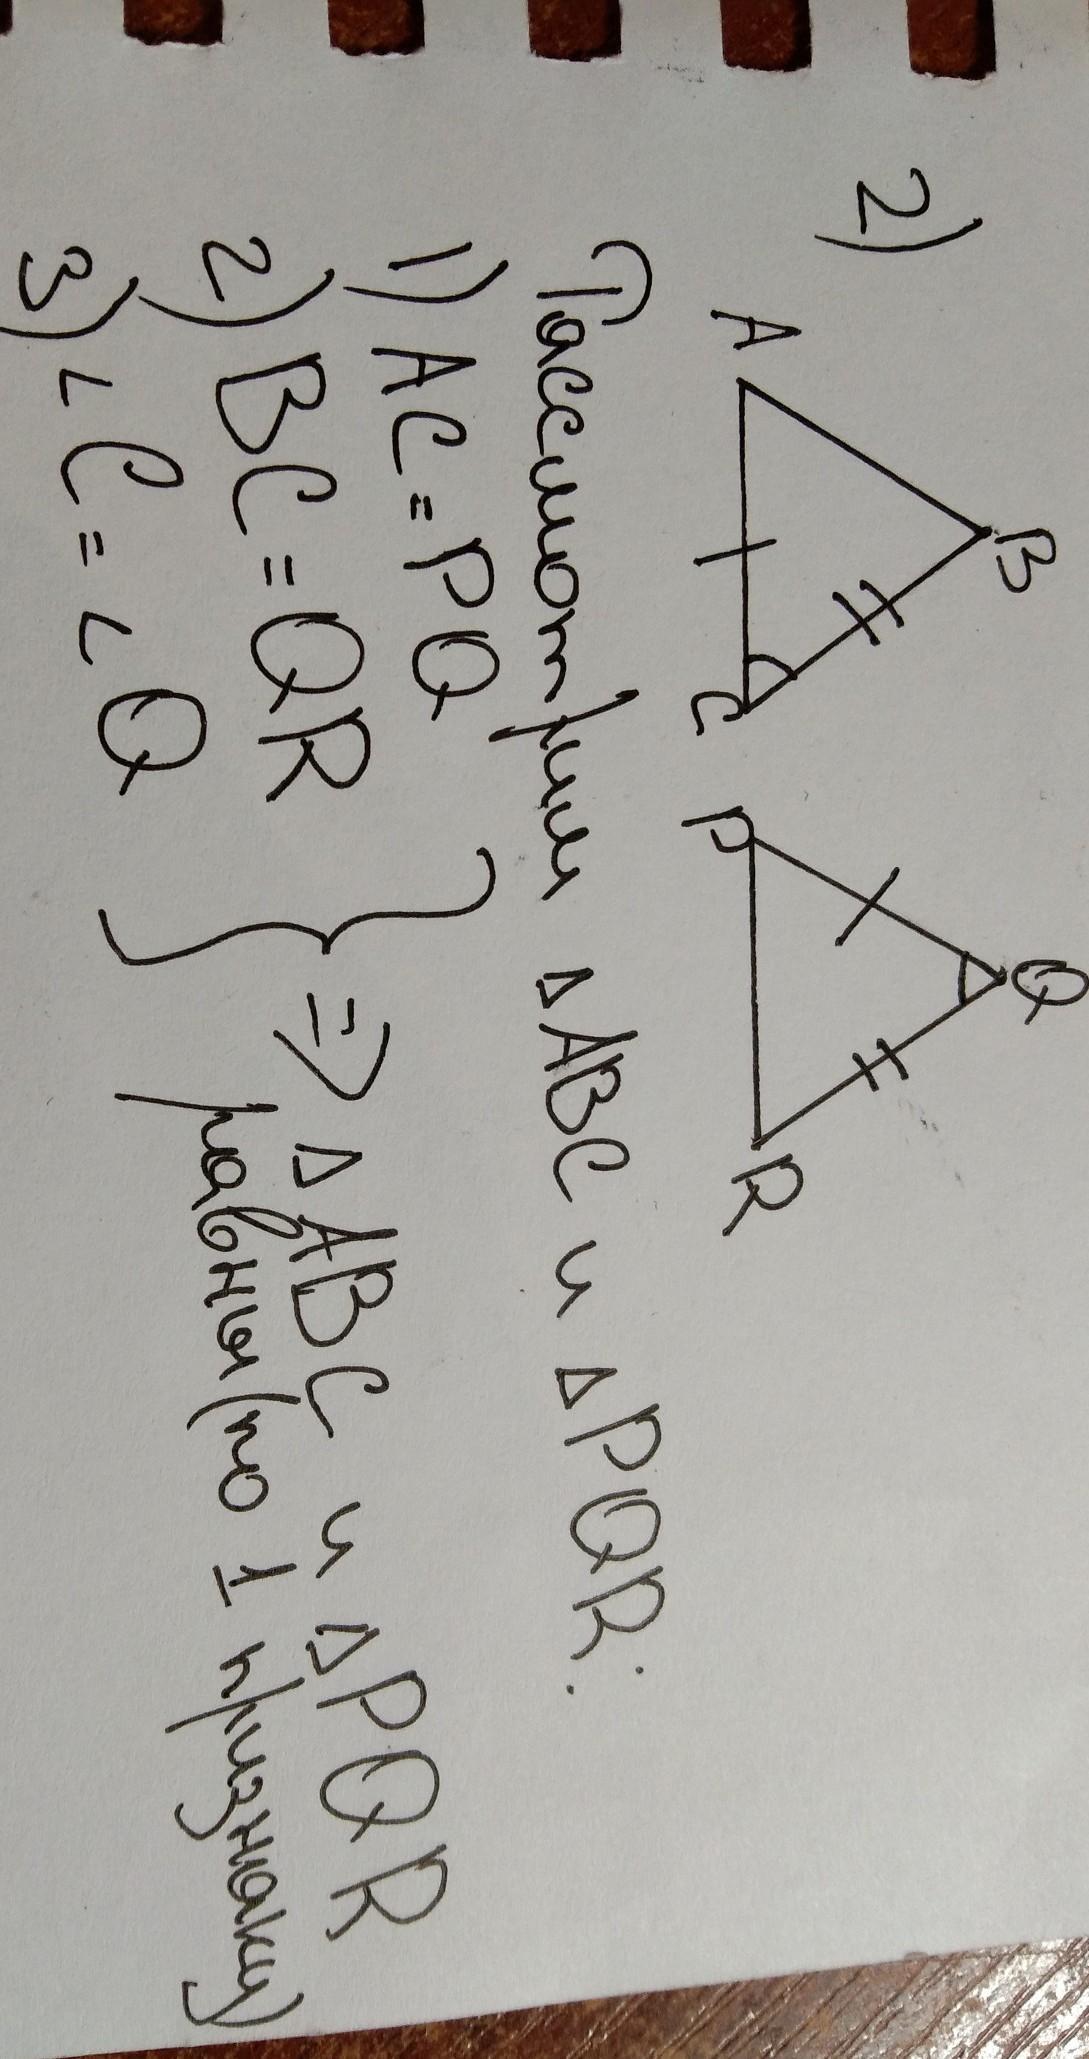 2)
A B C P Q R
Рассмотрим △ABC и △PQR:
1) AC = PQ
2) BC = QR
3) ∠C = ∠Q
} => △ABC и △PQR
равны (по 1 признаку)